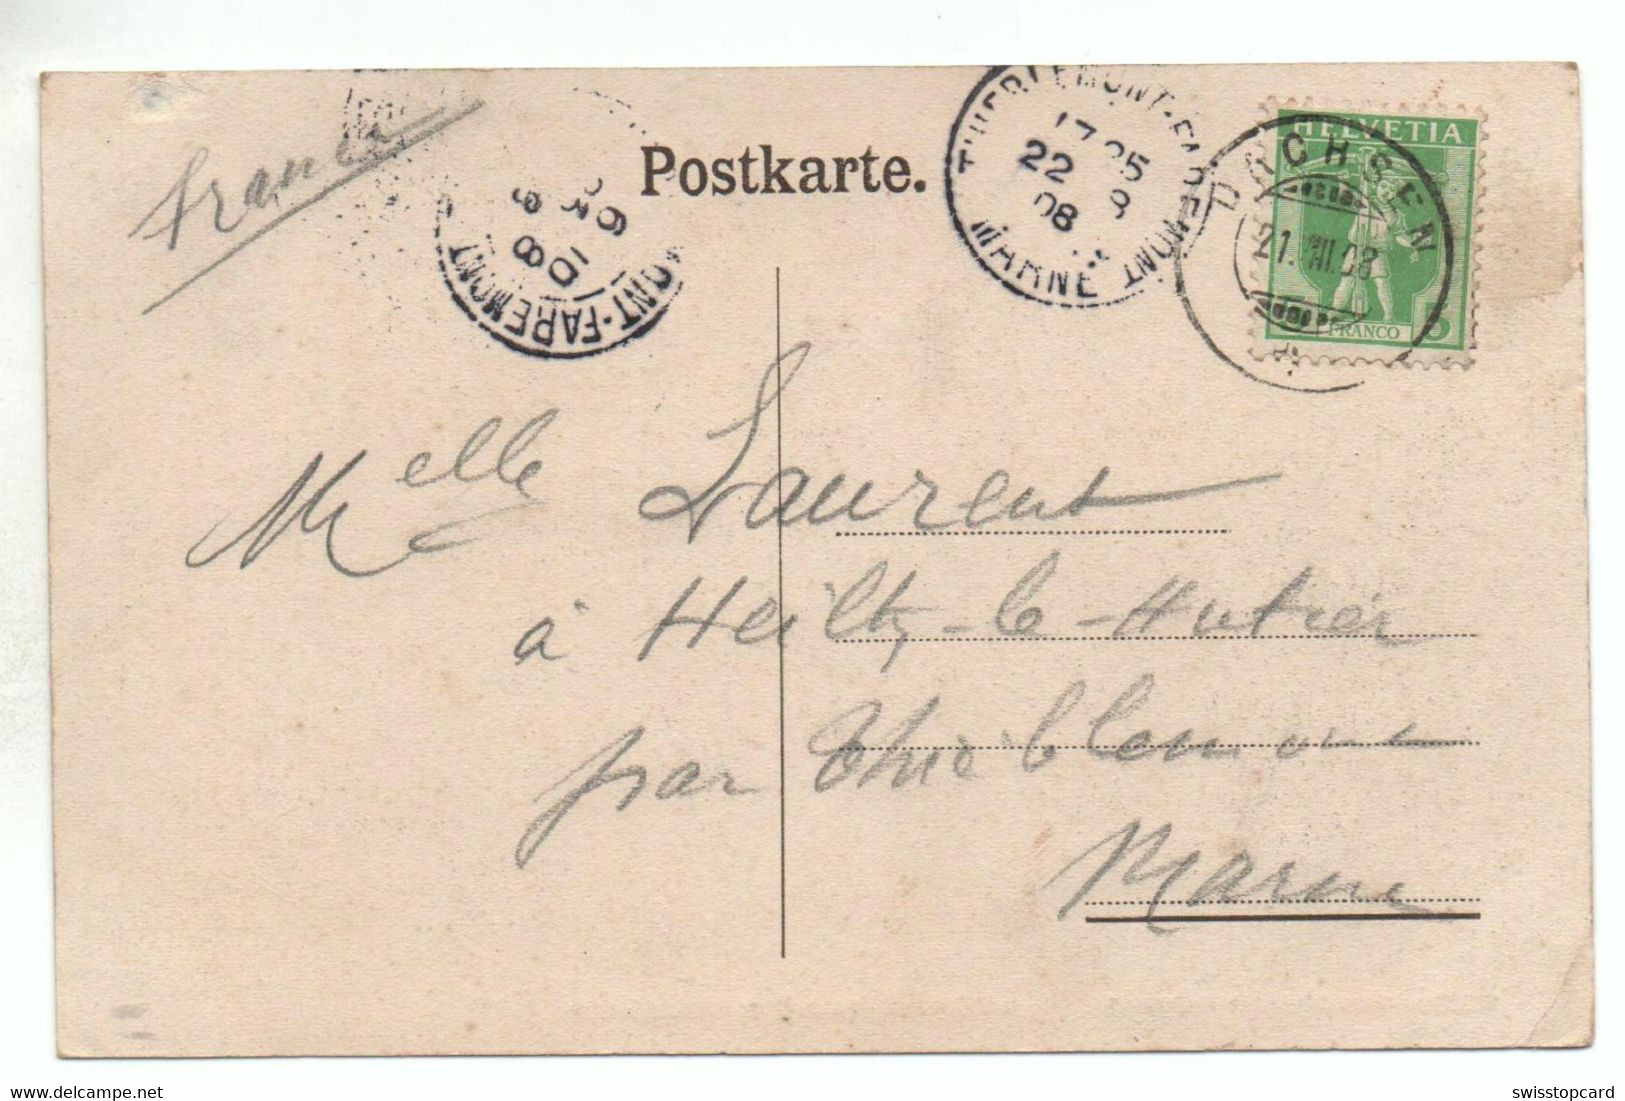 France
Postkarte.
THIEBLEMONT-FAREMONT
17 25
22 8
08
MARNE
DACHSEN
21.VIII.08
HELVETIA
FRANCO
5
ONT-FAREMONT
08
Melle Laurent
à Heiltz-le-Hutier
par Thiéblemont
Marne
delcampe.net
swisstopcard